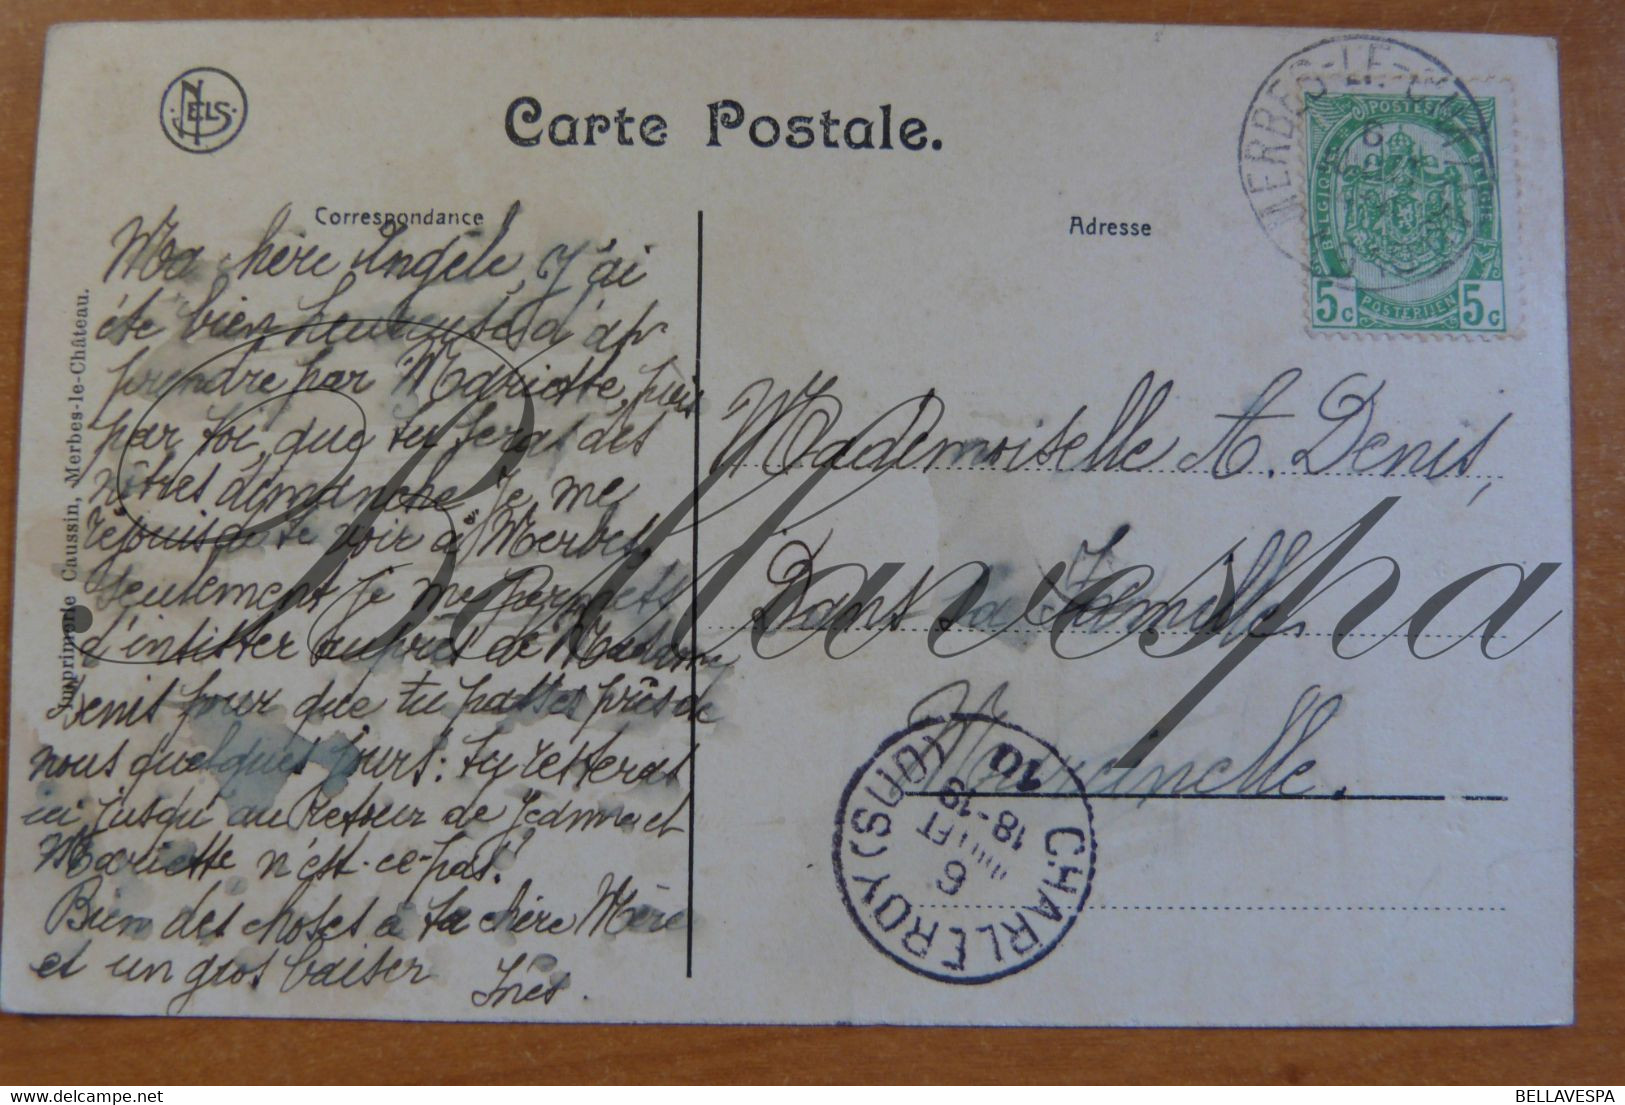 NELS
Carte Postale.
Correspondance
Adresse
Ma chère Angèle, J'ai
été bien heureuse d'ap
prendre par Mariette, puis
par toi, que tu seras des
nôtres dimanche. Je me
réjouis de te voir à Merbes
seulement je me permets
d'insister auprès de Madame
Denis pour que tu passes près de
nous quelques jours: tu resteras
ici jusqu'au retour de et
Mariette n'est-ce-pas!
Bien des choses à ta chère Mère
et un gros baiser Inès.
Imprimerie Caussin, Merbes-le-Château.
MERBES-LE-CHATEAU
POSTES
BELGIQUE BELGIË
5c POSTERIJEN 5c
Mademoiselle A. Denis,
Dans sa Famille
Marcinelle.
CHARLEROY (SUD)
6
18-19
10
Bellavespa
BELLAVESPA